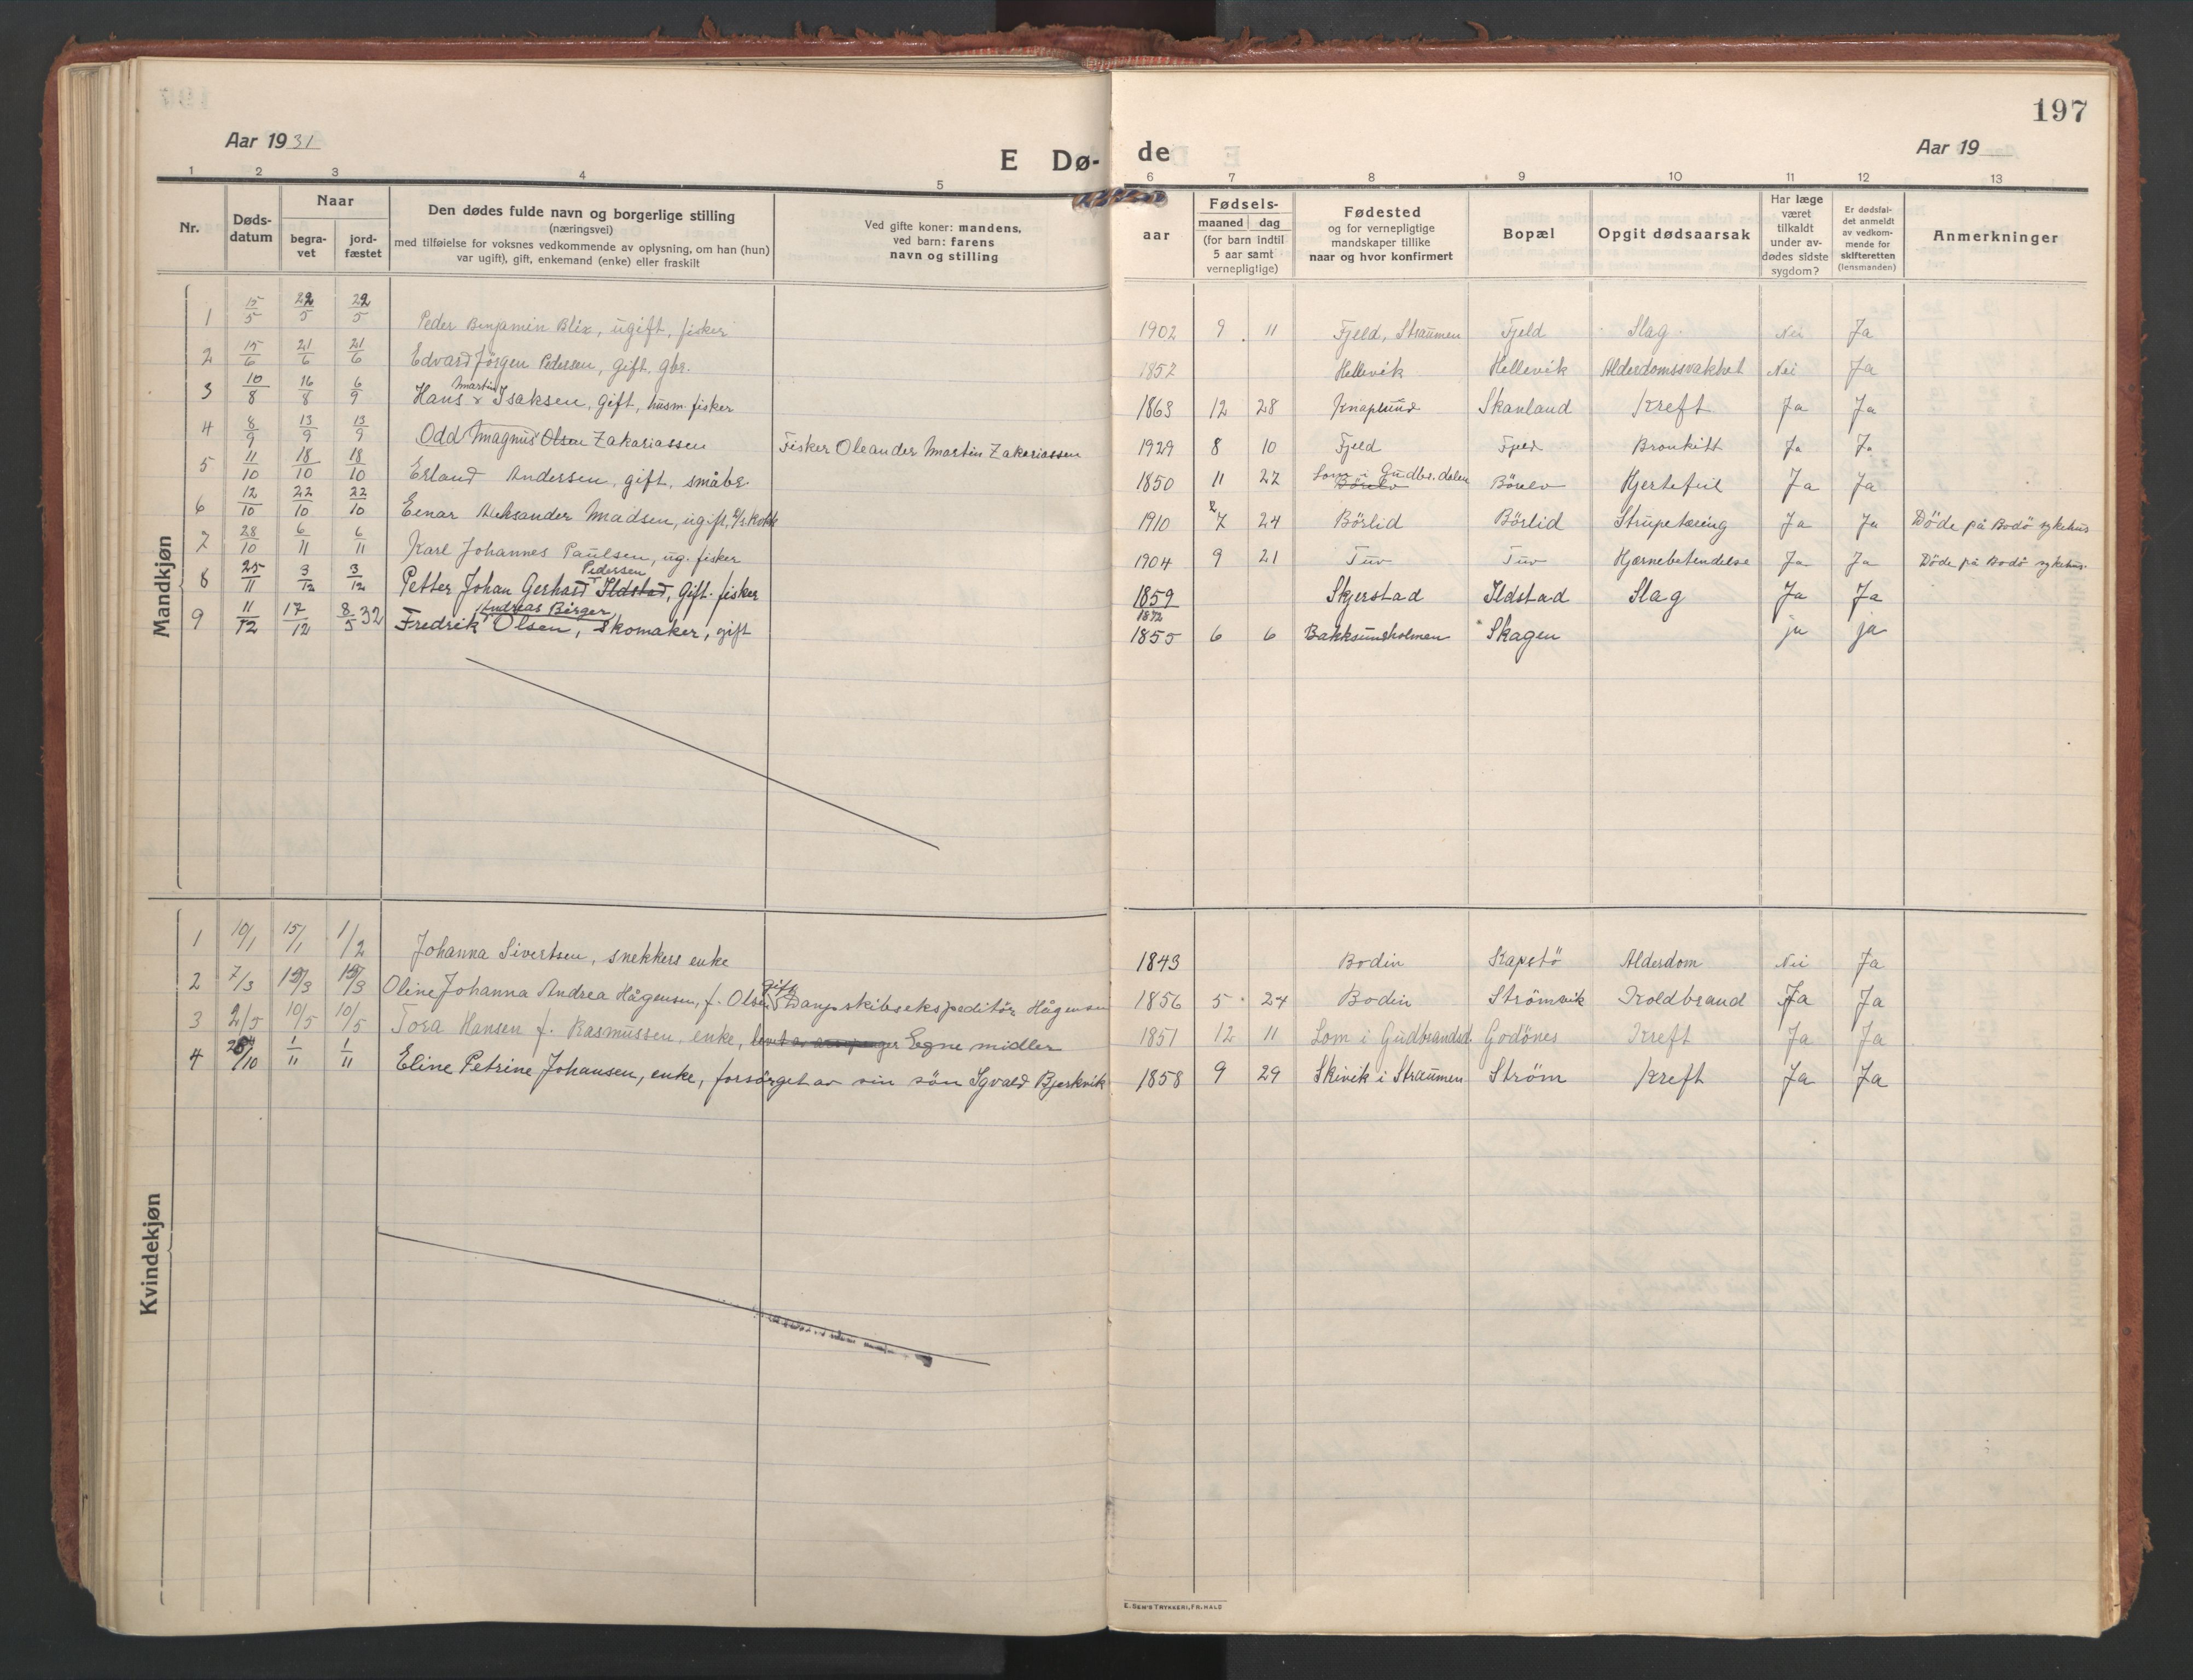 197
Aar 1931
E Dø-de
Aar 19
1 2 3 4 5 6 7 8 9 10 11 12 13
Nr.
Døds-datum
Naar
begra-vet
jord-fæstet
Den dødes fulde navn og borgerlige stilling
(næringsvei)
med tilføielse for voksnes vedkommende av oplysning, om han (hun)
var ugift), gift, enkemand (enke) eller fraskilt
Ved gifte koner: mandens,
ved barn: farens
navn og stilling
aar
Fødsels-
maaned dag
(for barn indtil
5 aar samt
vernepligtige)
Fødested
og for vernepligtige
mandskaper tillike
naar og hvor konfirmert
Bopæl
Opgit dødsaarsak
Har læge
været
tilkaldt
under av-
dødes sidste
sygdom?
Er dødsfal-
det anmeldt
av vedkom-
mende for
skifteretten
(lensmanden)
Anmerkninger
Mandkjøn
1 15/5 22/5 22/5 Peder Benjamin Blix, ugift, fisker 1902 9 11 Fjeld, Straumen Fjeld Slag Nei Ja
2 15/6 21/6 21/6 Edvard Jørgen Pedersen, gift, gbr. 1852 Hellevik Hellevik Alderdomssvakhet Nei Ja
3 10/8 16/8 6/9 Hans Martin Isaksen, gift, husm. fisker 1863 12 28 Knaplund Skanland Kreft Ja Ja
4 8/9 13/9 13/9 Odd Magnus Olsen Zakariassen Fisker Oleander Martin Zakariassen 1929 8 10 Fjeld Fjeld Bronkitt Ja Ja
5 11/10 18/10 18/10 Erland Andersen, gift, småbr. 1850 11 27 Lom i Gudbr.dalen Börelv Börelv Hjertefeil Ja Ja
6 12/10 22/10 22/10 Einar Aleksander Madsen, ugift, kokk 1910 2 7 24 Börlid Börlid Strupetæring Ja Ja Döde på Bodö sykehus
7 28/10 6/11 6/11 Karl Johannes Paulsen, ug. fisker 1904 9 21 Tuv Tuv Hjernebetendelse Ja Ja Döde på Bodö sykehus.
8 25/11 3/12 3/12 Petter Johan Gerhard Pedersen Ildstad, Gift. fisker 1859 Skjerstad Ildstad Slag Ja Ja
9 11/12 17/12 8/5 32 Fredrik Andreas Birger Olsen, Skomaker, gift 1872 1855 6 6 Bakksundholmen Skagen ja ja
Kvindekjøn
1 10/1 15/1 1/2 Johanna Sivertsen, snekkers enke 1843 Bodin Kapstö Alderdom Nei Ja
2 7/3 /3 /3 Oline Johanna Andrea Hågensen, f. Olsen gift Dampskibsekspeditör Hågensen 1856 5 24 Bodin Strömsvik Koldbrand Ja Ja
3 2/5 10/5 10/5 Tora Hansen f. Rasmussen, enke, Egne midler 1851 12 11 Lom i Gudbrandsd. Godönes Kreft Ja Ja
4 /10 1/11 1/11 Eline Petrine Johansen, enke, forsörget av sin sön Igvald Bjerkvik 1858 9 29 Skivik i Straumen Ström Kreft Ja Ja
E. SEM'S TRYKKERI, FR.HALD